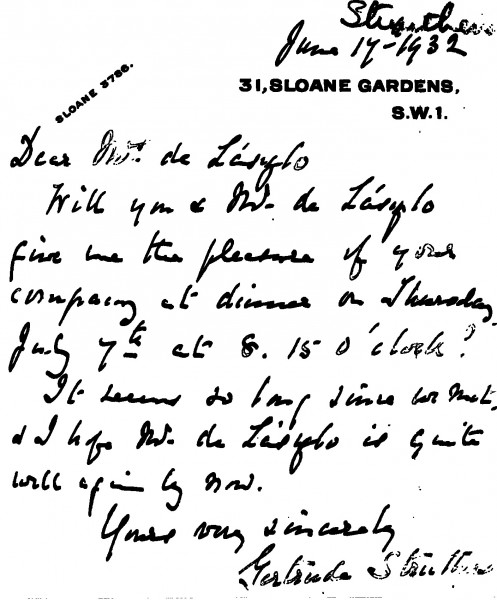 Struthers
June 17-1932
SLOANE 3786.
31, SLOANE GARDENS,
S.W.1.
Dear Mrs. de László
Will you & Mr. de László
give me the pleasure of your
company at dinner on Thursday,
July 7th at 8.15 o'clock?
It seems so long since we met,
& I hope Mr. de László is quite
well again by now.
Yours very sincerely
Gertrude Struthers